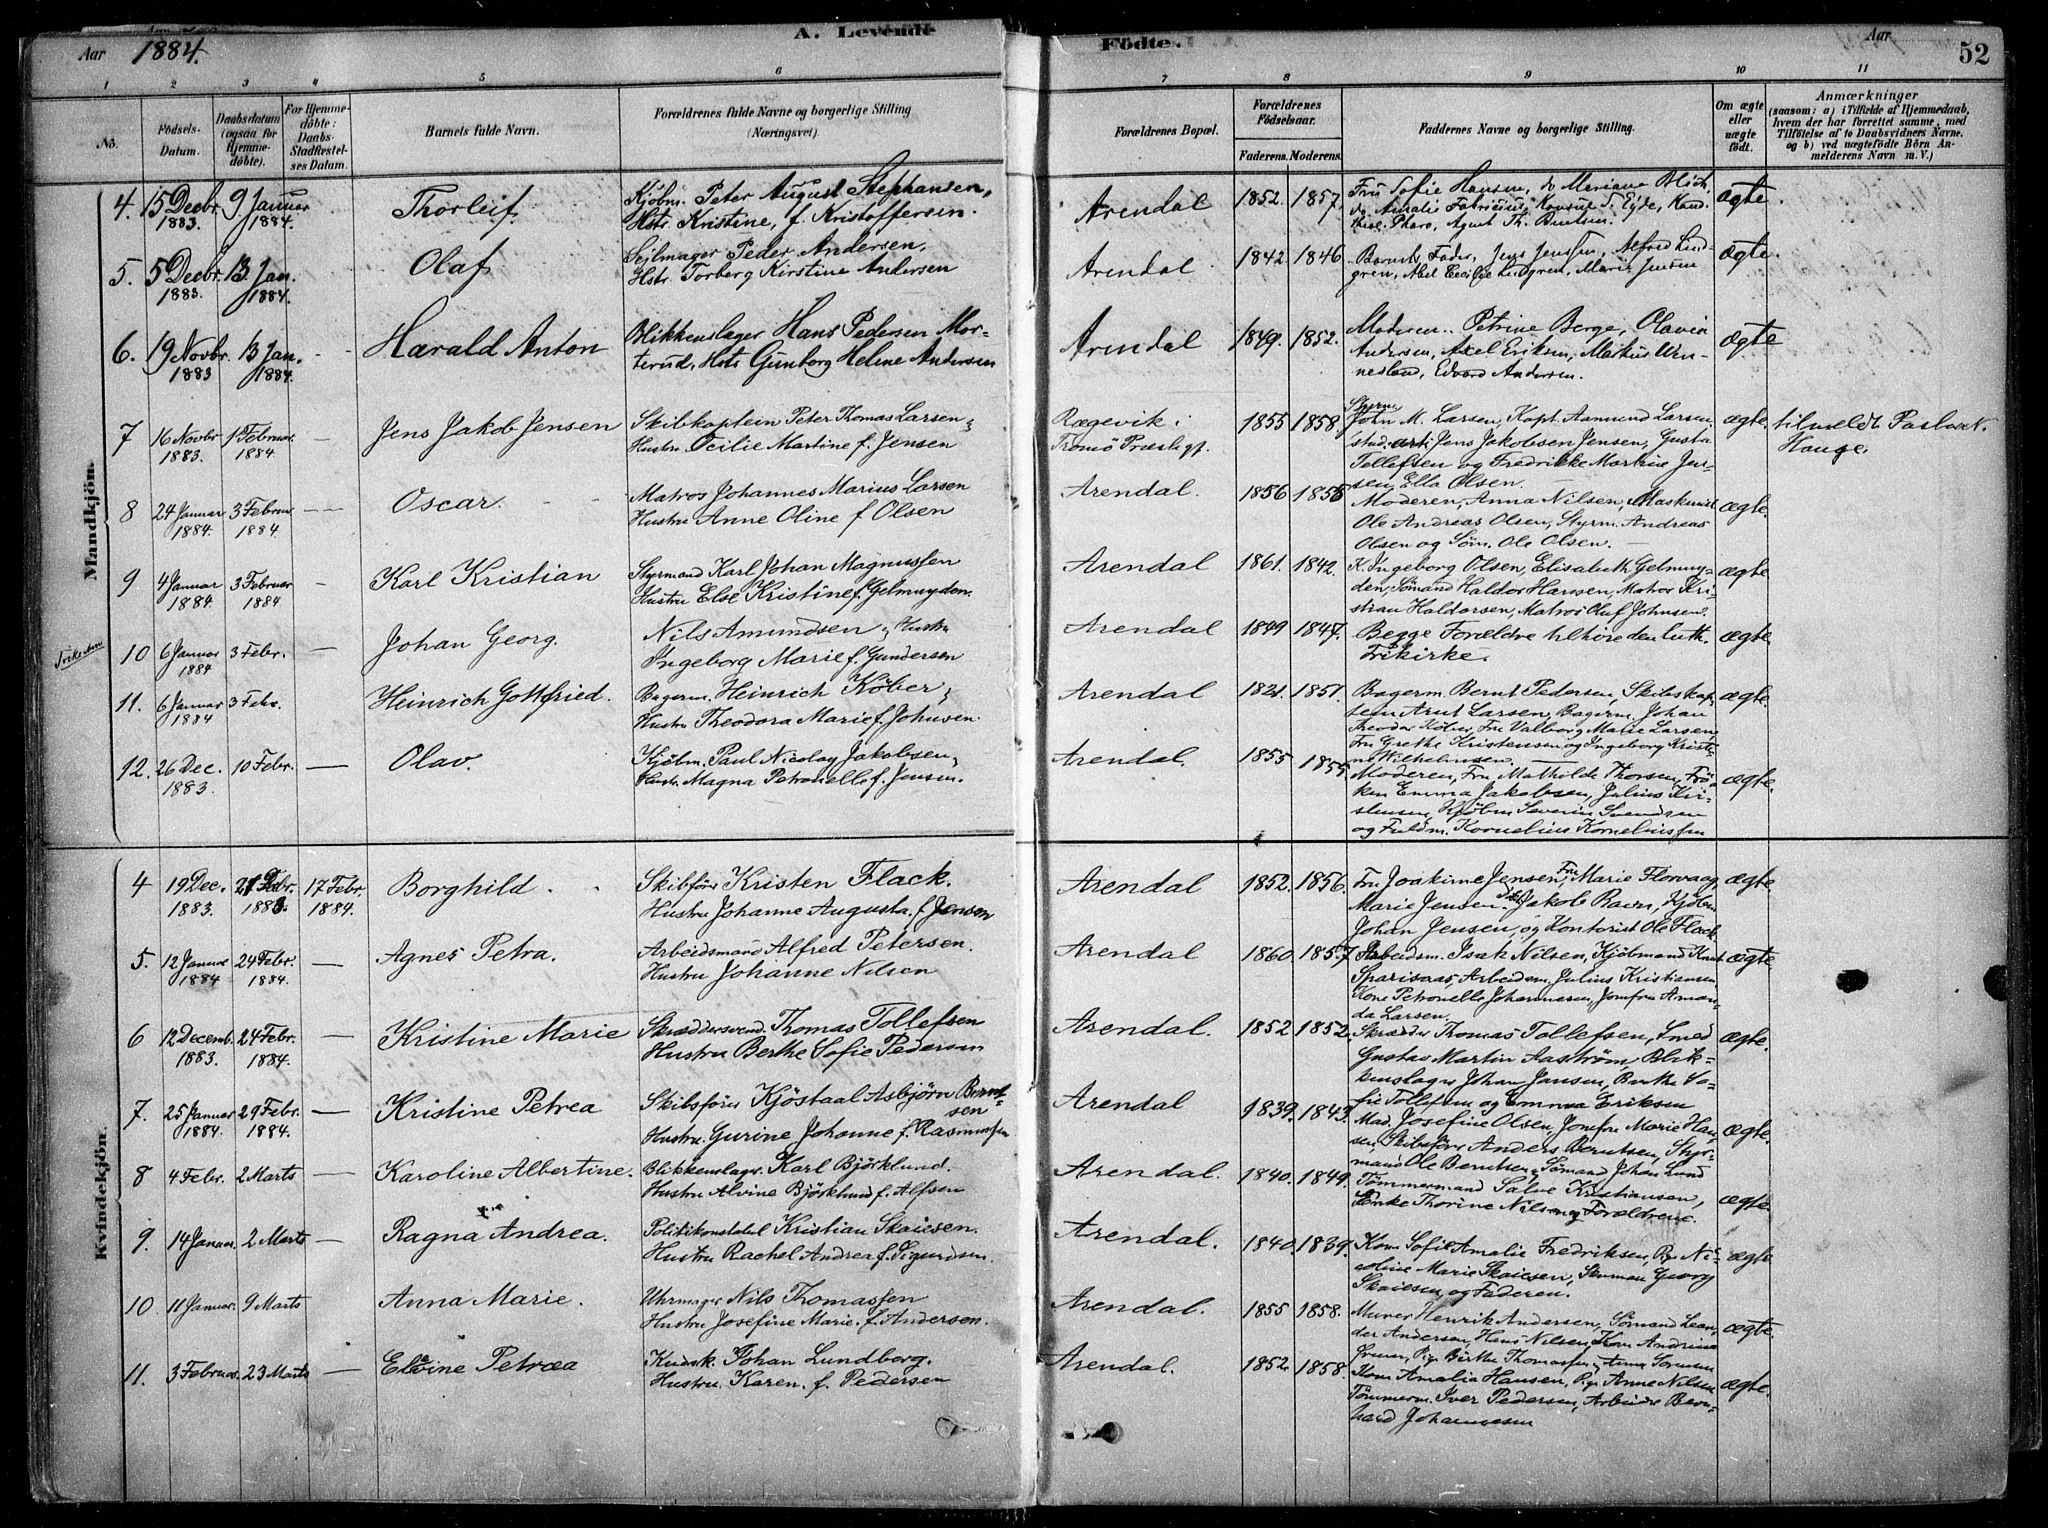 Aar 1884.
A. Levende
Födte.
Aar
52
1 2 3 4 5 6 7 8 9 10 11
No.
Födsels-Datum.
Daabsdatum (ogsaa for Hjemmedöbte).
For Hjemmedöbte: Daabs-Stadfæstelses Datum.
Barnets fulde Navn.
Forældrenes fulde Navne og borgerlige Stilling (Næringsvei).
Forældrenes Bopæl.
Forældrenes Födselsaar.
Faderens. Moderens.
Faddernes Navne og borgerlige Stilling.
Om ægte eller uægte födt.
Anmærkninger
(saasom: a) i Tilfælde af Hjemmedaab, hvem der har forrettet samme, med Tilföielse af to Daabsvidners Navne, og b) ved uægtefödte Börn Anmelderens Navn m. V.)
Mandkjön.
4. 15 Decbr 1883 9 Januar 1884. Thorleif.
Kjöbm. Peter August Stephansen,
Hstr. Kristine, f. Kristoffersen.
Arendal 1852. 1857.
Fru Sofie Hansen, do Mariane Blich,
do Amalie Fabricius, Konsul S. Eyde, Kand.
theol. Tharo, Agent Th. Bentsen.
ægte.
5. 5 Decbr 1883. 13 Jan. 1884. Olaf
Seilmager Peder Andersen,
Hstr. Torberg Kirstine Andersen
Arendal. 1842 1846
Barnets Fader, Jens Jensen, Alfred Lind-
gren, Abel Cecilie Lindgren, Marie Jensen
ægte.
6. 19 Novbr. 1883 13 Jan. 1884. Harald Anton
Blikkenslager Hans Pedersen Mor-
terud, Hstr Gunborg Helene Andersen
Arendal 1849. 1852.
Moderen, Petrine Berge, Olavia
Andersen, Axel Eriksen, Markus Ven-
nesland, Edvard Andersen.
ægte
7 16 Novbr 1883. 1 Februar 1884 — Jens Jakob Jensen
Skibkaptein Peter Thomas Larsen,
Hustru Cecilie Martine f. Jensen
Rægevik i
Tromö Præstegj.
1855 1858.
Styrm.
John M. Larsen, Kapt. Aamund Larsen
stud. art. Jens Jakobsen Jensen, Gusta
Tellefsen og Fredrikke Martine Jen-
sen, Ella Olsen.
ægte. tilmeldt Pastor N.
Hauge.
8 24 Januar 1884. 3 Februar 1884 — Oscar.
Matros Johannes Marius Larsen
Hustru Anne Oline f Olsen
Arendal. 1856 1856
Moderen, Anna Nilsen, Maskinist
Ole Andreas Olsen, Styrm. Andreas
Olsen og Söm. Ole Olsen. —
ægte.
9 4 Januar 1884. 3 Februar 1884 — Karl Kristian
Styrmand Karl Johan Magnussen
Hustru Else Kristine f. Gelmuyden.
Arendal 1861. 1842.
K. Ingeborg Olsen, Elisabeth Gelmuy-
den, Sömand Haldor Hansen, Matros Kri-
stian Haldorsen, Matros Oluf Johnsen.
ægte.
10 6 Januar 1884 3 Febr. — Johan Georg.
Nils Amundsen, Hustru
Ingeborg Marie f. Gundersen
Arendal 1849 1847.
Begge Forældre tilhöre den luth.
Frikirke.
ægte.
11. 6 Januar 1884 3 Febr. — Heinrich Gottfried.
Bagerm. Heinrich Köber,
Hustru Theodora Marie f. Johnsen.
Arendal. 1821. 1851.
Bagerm. Bernt Pedersen, Skibskap-
tein Arnt Larsen, Bagerm. Johan
Theodor Köber, Fru Valborg Marie Larsen,
Fru Grethe Kristensen og Ingeborg Kristi-
ne Wilhelmsen.
ægte.
12. 26 Dec. 1883. 10 Febr. — Olav.
Kjöbm. Paul Nicolay Jakobsen,
Hustr. Magna Petronelle f. Jensen.
Arendal. 1855 1855.
Moderen, Fru Mathilde Thorsen, Frö-
ken Emma Jakobsen, Julius Kri-
stensen, Kjöbm Severin Svendsen
og Fuldm. Kornelius Korneliussen
ægte.
Kvindekjön.
4 19 Dec. 1883. 1883. 17 Febr. 1884. Borghild.
Skibsförer Kristen Flack.
Hustru Johanne Augusta f. Jensen
Arendal 1852. 1856.
Fru Joakime Jensen, Fru Marie Flovaag,
Marie Jensen. Jakob Ravn, Kjöbm
Johan Jensen, og Kontorist Ole Flack.
ægte.
5. 12 Januar 1884 24 Febr. 1884. — Agnes Petra.
Arbeidsmand Alfred Petersen.
Hustru Johanne Nilsen
Arendal 1860. 1857
Arbeidsm. Isak Nilsen, Kjöbmand Knut
Sparisaas, Arbeidsm. Julius Kristiansen
Kone Petronelle Johannesen, Jomfru Aman-
da Larsen.
ægte.
6 12 Decemb. 1883. 24 Febr. 1884. — Kristine Marie
Skræddersvend. Thomas Tollefsen
Hustru Berthe Sofie Pedersen
Arendal. 1852 1852.
Skrædder Thomas Tollefsen, Smed
Gustav Martin Aaström, Blik-
kenslager Johan Jansen, Berthe So-
fie Tollefsen og Emma Eriksen
ægte.
7. 25 Januar 1884. 29 Febr. 1884. — Kristine Petrea
Skibsförer Kjöstaal Asbjörn Bernt-
sen
Hustru. Gurine Johanne f. Rasmussen
Arendal 1839. 1843.
Mad. Josefine Olsen, Jomfru Marie Han-
sen, Skibsförer Anders Berntsen, Styr-
mand Ole Berntsen, Sömand Johan Lund
ægte.
8 4 Febr. 2 Marts — Karoline Albertine.
Blikkenslager. Karl Björklund.
Hustru Alvine Björklund f. Alfsen
Arendal. 1840. 1849.
Tömmermand Salve Kristiansen,
Enke Thorine Nilsen og Forældrene.
ægte.
9. 14 Januar. 2 Marts — Ragna Andrea.
Politikonstabel Kristian Skaiesen.
Hustru Rachel Andrea f. Sigundsen.
Arendal. 1840. 1839.
Kone Sofie Amalie Fredriksen, Pige Ni-
coline Marie Skaiesen, Georg
Skaiesen og Faderen.
ægte
10 11 Januar. 9 Marts — Anna Marie.
Uhrmager Nils Thomassen
Hustru Josefine Marie. f. Andersen.
Arendal. 1855 1858.
Murer Henrik Andersen, Sömand Lean-
der Andersen, Hans Nilsen, Kone Andrine
Pige Birthe Thomassen,
ægte.
11. 3 Februar. 23 Marts — Elvine Petrea
Kudsk. Johan Lundberg.
Hustru. Karen. f. Pedersen
Arendal. 1852. 1858.
Kone Amalia Hansen, Pige Anne Nilsen
Tömmerm. Iver Pedersen, Arbeider Bern-
hard Johannesen
ægte.